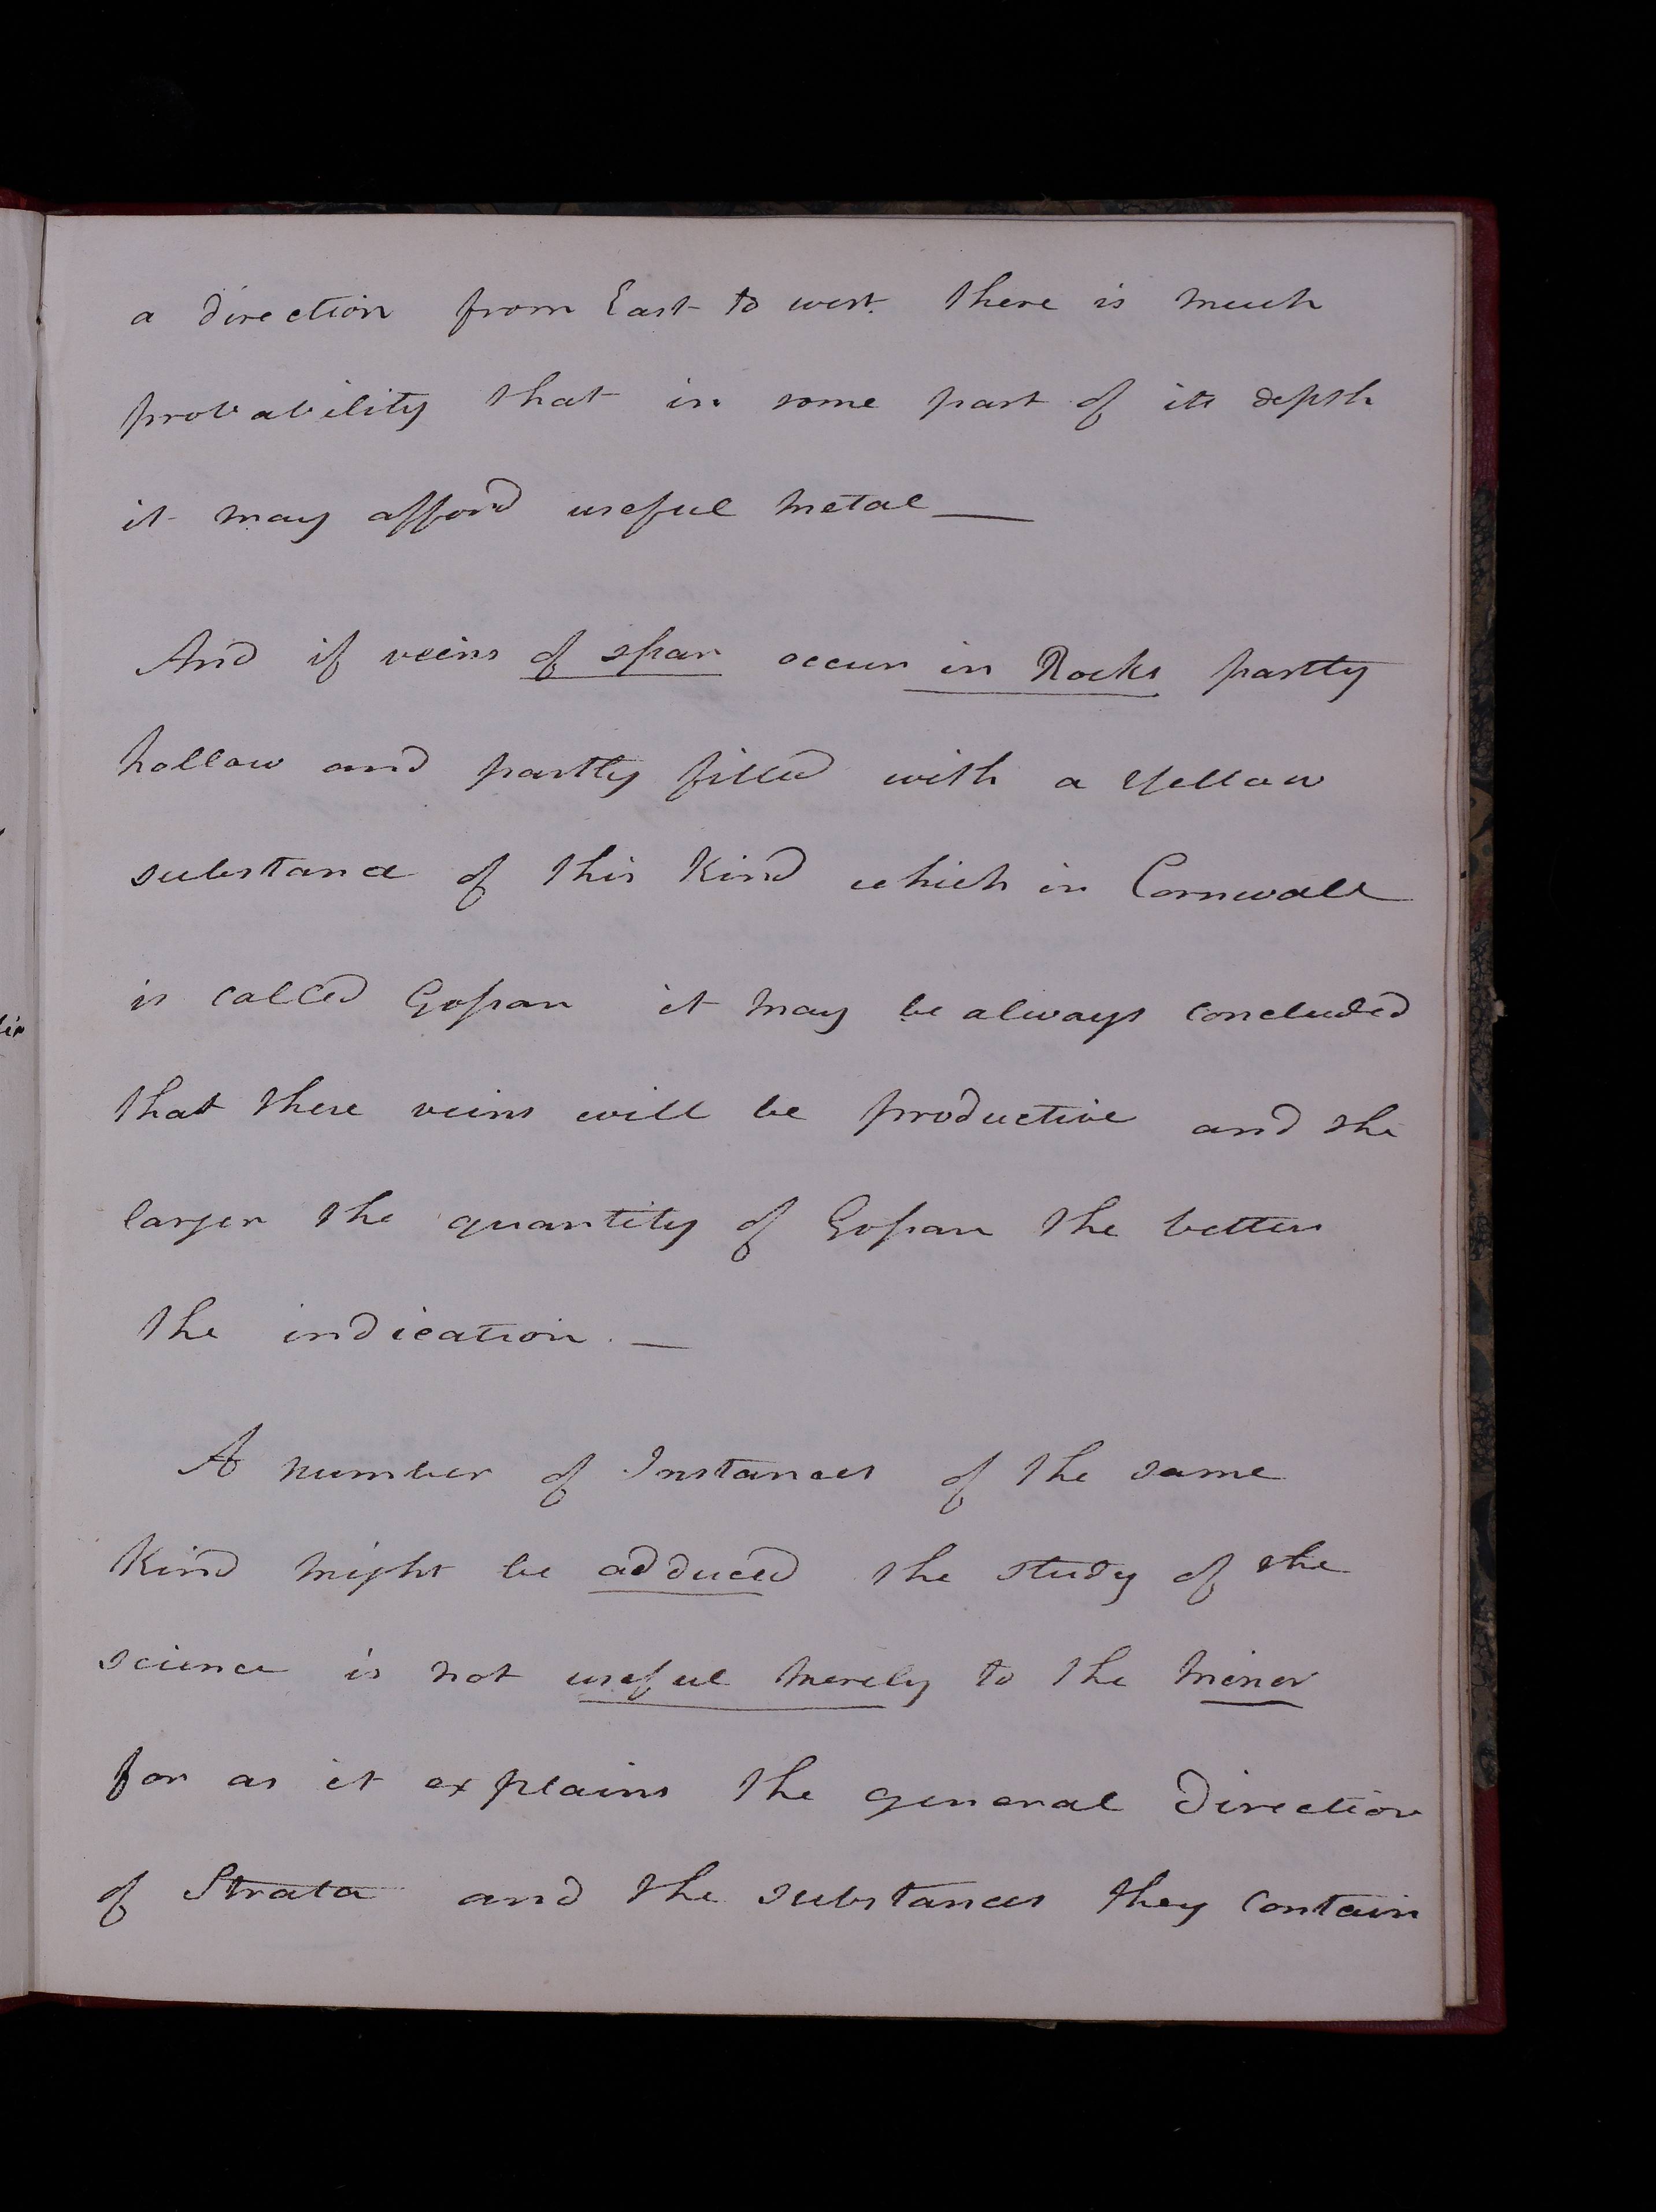 a direction from East to west. there is much
probability that in some part of its depth
it may afford useful metal —
And if veins of spar occur in Rocks partly
hollow and partly filled with a Yellow
substance of this Kind which in Cornwall
is called Gossan it may be always concluded
that these veins will be productive and the
larger the quantity of Gossan the better
the indication. —
A number of Instances of the same
Kind might be adduced the study of the
science is not useful merely to the miner
for as it explains the general direction
of Strata and the substances they contain